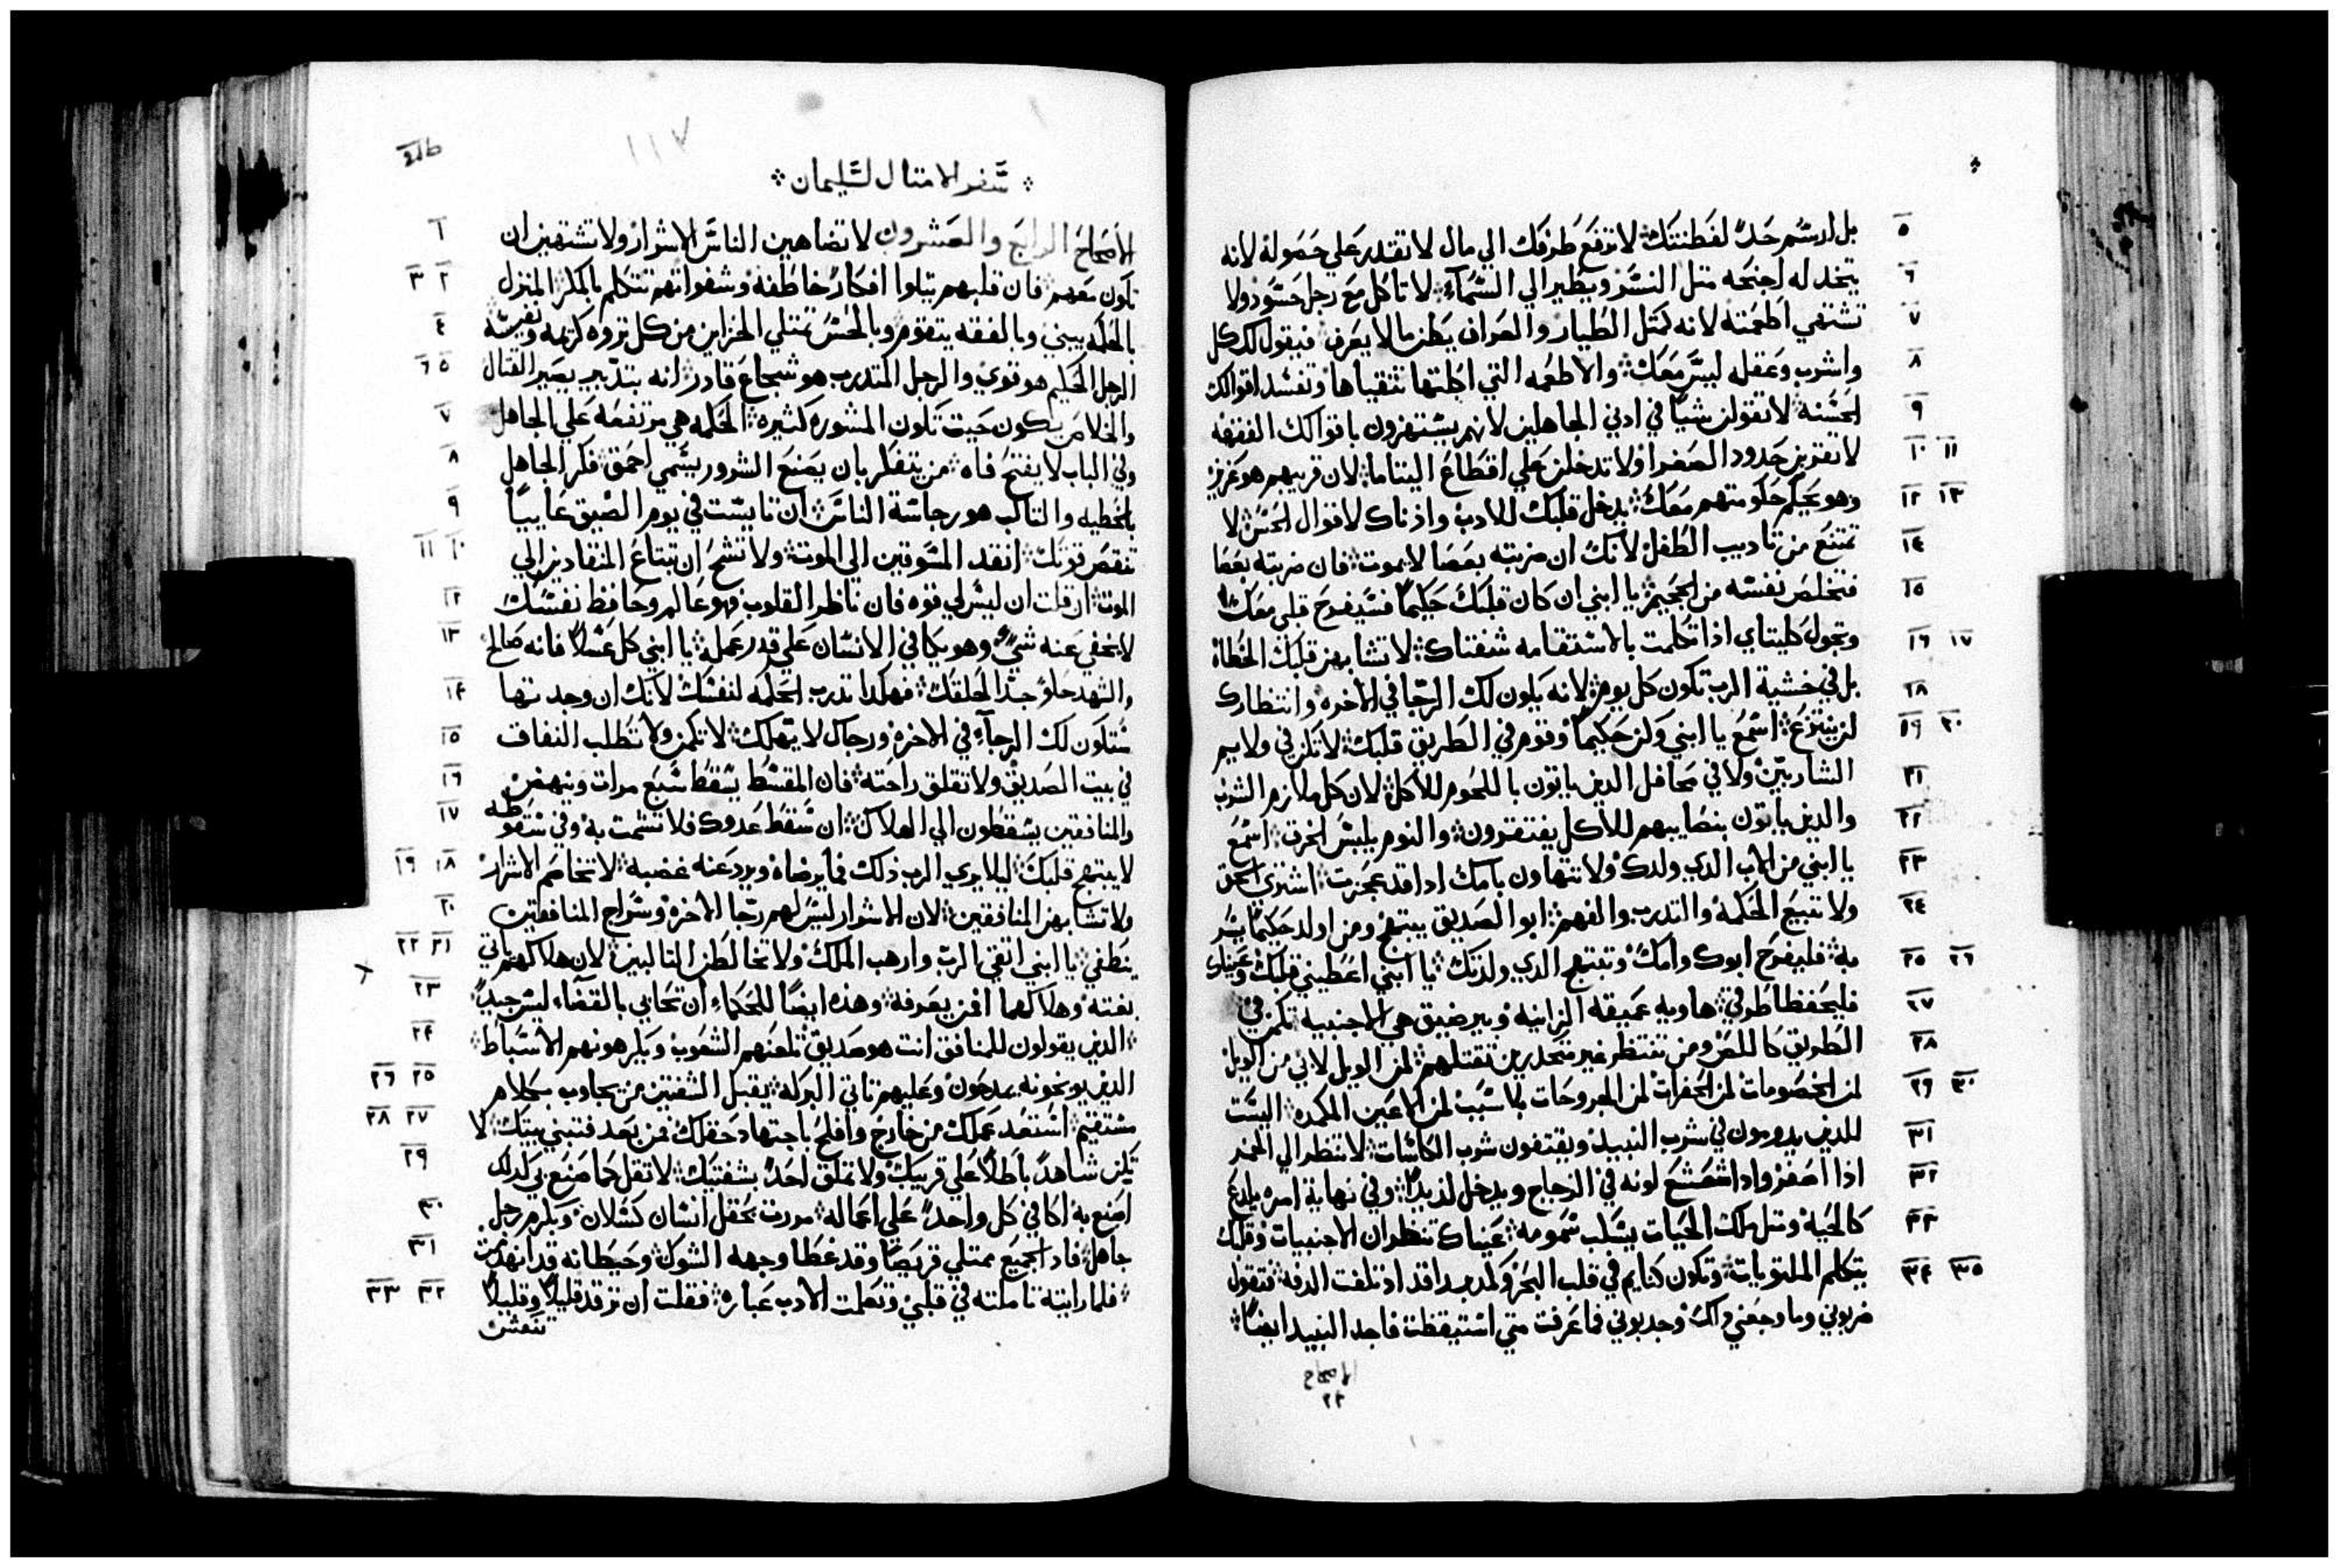 ٥ بل ارسم حدًا لفطنتك لا ترفع طرفك الي مال لا تقتدر علي حصوله لانه
٦ يتخد له اجنحه متل النسر ويطير الي السماء لا تاكل مع رجل حسود ولا
٧ تشتهي اطعمته لانه كمتل الطيار والعراف يظن ما لا يعرف فيقول لك كل
٨ واشرب وعقله ليس معك والاطعمه التي اكلتها تتقياها وتفسد اقوالك
٩ الحسنه لا تقولن شيًا في ادني الجاهلين لانهم يستهزون باقوالك الفقهه
١٠ ١١ لا تقتربن حدود الصغر اولا تدخلن علي اقطاع اليتاما لان قريبهم هو عزيز
١٢ ١٣ وهو يحكم حكومتهم معك يدخل قلبك للادب واذناك لاقوال الحسن لا
١٤ تمتنع من تاديب الطفل لانك ان ضربته بعصا لا يموت فان ضربته بعصا
١٥ فتخلص نفسه من الجحيم يا ابني ان كان قلبك حكيمًا فسيفرح قلبي معك
١٦ ١٧ وتجول كليتاي اذا تكلمت بالاستقامه شفتاك لا تشابهن قلبك الخطاه
١٨ بل في خشية الرب تكون كل يوم لانه يكون لك الرجا في الاخره وانتظارك
١٩ ٢٠ لن ينتزع اسمع يا ابني وكن حكيمًا وقوم في الطريق قلبك لا تكن في ولايم
٢١ الشاربين ولا في محافل الدين ياتون باللحوم للاكل لان كل ملازم الشرب
٢٢ والدين ياتون بنصايبهم للاكل يفتقرون والنوم يلبس الخرق اسمع
٢٣ يا ابني من الاب الدي ولدك ولا تتهاون بامك ادا قد عجزت اشتري الحق
٢٤ ولا تبيع الحكمه والتدرب والفهم ابو الصديق يبتهج ومن اولد حكيمًا يسر
٢٥ ٢٦ به فليفرح ابوك وامك وتبتهج الدي ولدتك يا ابني اعطيني قلبك وعيناك
٢٧ فليحفظا طرقي هاويه عميقه الزانيه وبير ضيق هي الاجنبيه تكمن في
٢٨ الطريق كاللص ومن تنتظر غير متحدرين تقتلهم لمن الويل لابي من الويل
٢٩ ٣٠ لمن الخصومات لمن الحفرات لمن الجروحات بلا سبب لمن الاعين المكمده اليست
٣١ للدين يدومون في شرب النبيد ويقتفون شرب الكاسات لا تنظر الي الخمر
٣٢ اذا اصفر واذا شعشع لونه في الزجاج ويدخل لذيدًا وفي نهاية امره يلدغ
٣٣ كالحيه ومتل ملك الحيات يسلب سمومه عيناك تنظران الاجنبيات وقلبك
٣٤ ٣٥ يتكلم الملتويات وتكون كنايم في قلب البحر وكمدبر اقد اذ تلفت الدفه فتقول
ضربوني وما وجعني ولك وجدبوني فما عرفت متي استيقظت فاجد النبيد ايضًا
اصحاح
٢٤
١١٧
سفر الامتال لسليمان
١ الاصحاح الرابع والعشرون لا تضاهين الناس الاشرار ولا تشتهين ان
٢ ٣ تكون معهم فان قلبهم يتلوا افكارًا خاطفه وشفواتهم تتكلم بالمكر المنزل
٤ بالحكمه يبني وبالفقه يتقوم وبالحس تمتلي الخزاين من كل تروه كريمه ونفيسه
٥ ٦ الرجل الحكيم هو قوي والرجل المتدرب هو شجاع قادر انه بتدبير يصير القتال
٧ والخلاص يكون حيت تكون المشوره كتيره الحكمه هي مرتفعه علي الجاهل
٨ وفي الباب لا يفتح فاه من يتفكر بان يصنع الشرور يسمي احمق فكر الجاهل
٩ بالخطيه والتالب هو رجاسة الناس ان تايست في يوم الضيق عاييًا
١٠ ١١ تنقص قوتك انقد المسوقين الي الموت ولا تشح ان تبتاع المنقادين الي
١٢ الموت ان قلت ان ليس لي قوه فان ناظر القلوب فهو عالم وحافظ نفسك
١٣ لا يخفي عنه شي وهو يكافي الانسان علي قدر عمله يا ابني كل عسلًا فانه صالح
١٤ والشهد حلو جدًا لحلقك فهكدا تدرب الحكمه لنفسك لانك ان وجدتها
١٥ ستكون لك الرجاء في الاخره ورجاك لا يهلك لا تكمن ولا تطلب النفاق
١٦ في بيت الصديق ولا تقلق راحته فان المقسط يسقط سبع مرات وينهض
١٧ والمنافقين يسقطون الي الهلاك ان سقط عدوك فلا تشمت به وفي سقوطه
١٨ ١٩ لا يبتهج قلبك ليلا يري الرب ذلك فما يرضاه ويرد عنه غضبه لا تخاصم الاشرار
٢٠ ولا تشابهن المنافقين لان الاشرار ليس لهم رجا الاخره وسراج المنافقين
٢١ ٢٢ ينطفي يا ابني اتقي الرب وارهب الملك ولا تخالطن التالبين لان هلاكهم ياتي
٢٣ بغته وهلاكهما افمن يعرفه وهذه ايضًا للحكماء ان تحابي بالقضاء ليس جيدًا
٢٤ الدين يقولون للمنافق انت هو صديق تلعنهم الشعوب ويكرهونهم الاسباط
٢٥ ٢٦ الدين يوبخونه يمدحون وعليهم تاتي البركه يقبل الشفتين من يجاوب بكلام
٢٧ ٢٨ مستقيم استعد عملك من خارج وافلح باجتهاد حقلك فمن بعد فتبني بيتك لا
٢٩ تكن شاهدًا باطلًا علي قريبك ولا تملق احدًا بشفتيك لا تقل كما صنع بي كدلك
٣٠ اصنع به اكافي كل واحدًا علي اعماله مررت بحقل انسان كسلان وبكرم رجل
٣١ جاهل فاد الجميع ممتلي قريصًا وقد غطا وجهه الشوك وحيطانه قد انهدمت
٣٢ ٣٣ فلما رايته تاملته في قلبي وتعلمت الادب عباره فقلت ان ترقد قليلًا وقليلًا
تنعش